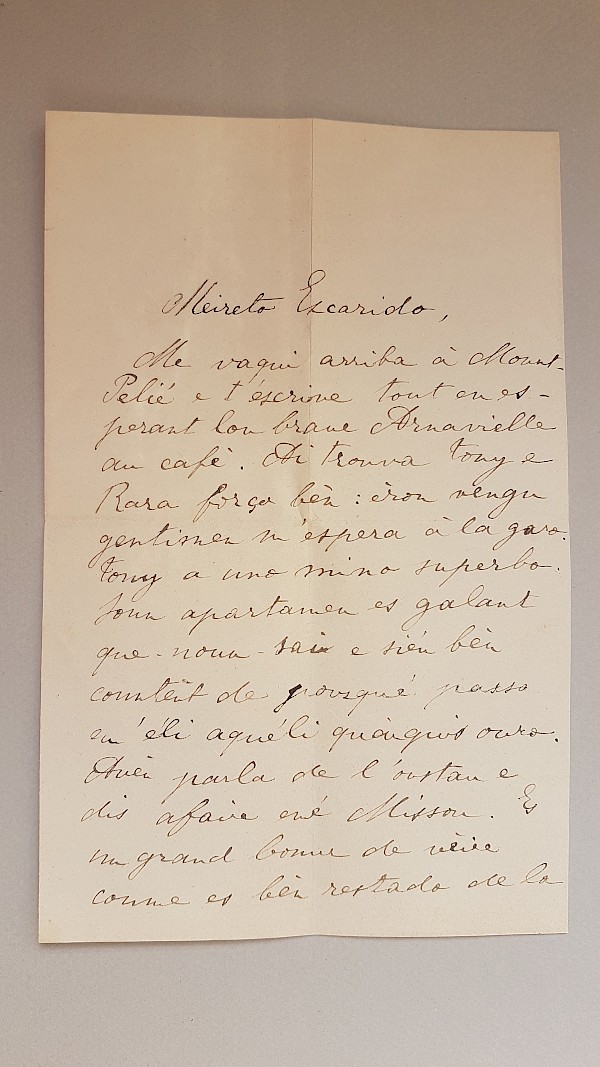 Meireto Excarido,
Me vaqui arriba à Mount-
Pelié e t'escrive tout en es-
perant lou brave Arnavielle
au cafè. Ai trouva Tony e
Rara forço bèn : èron vengu
gentimen m'espera à la garo.
Tony a uno mino superbo.
Soun apartamen es galant
que-noun-sai e siéu bèn
countènt de pousqué passa
em' éli aquéli quàuquis ouro.
Avèn parla de l'oustau e
dis afaire emé Misson. Es
un grand bonur de vèire
coume es bèn restado de la